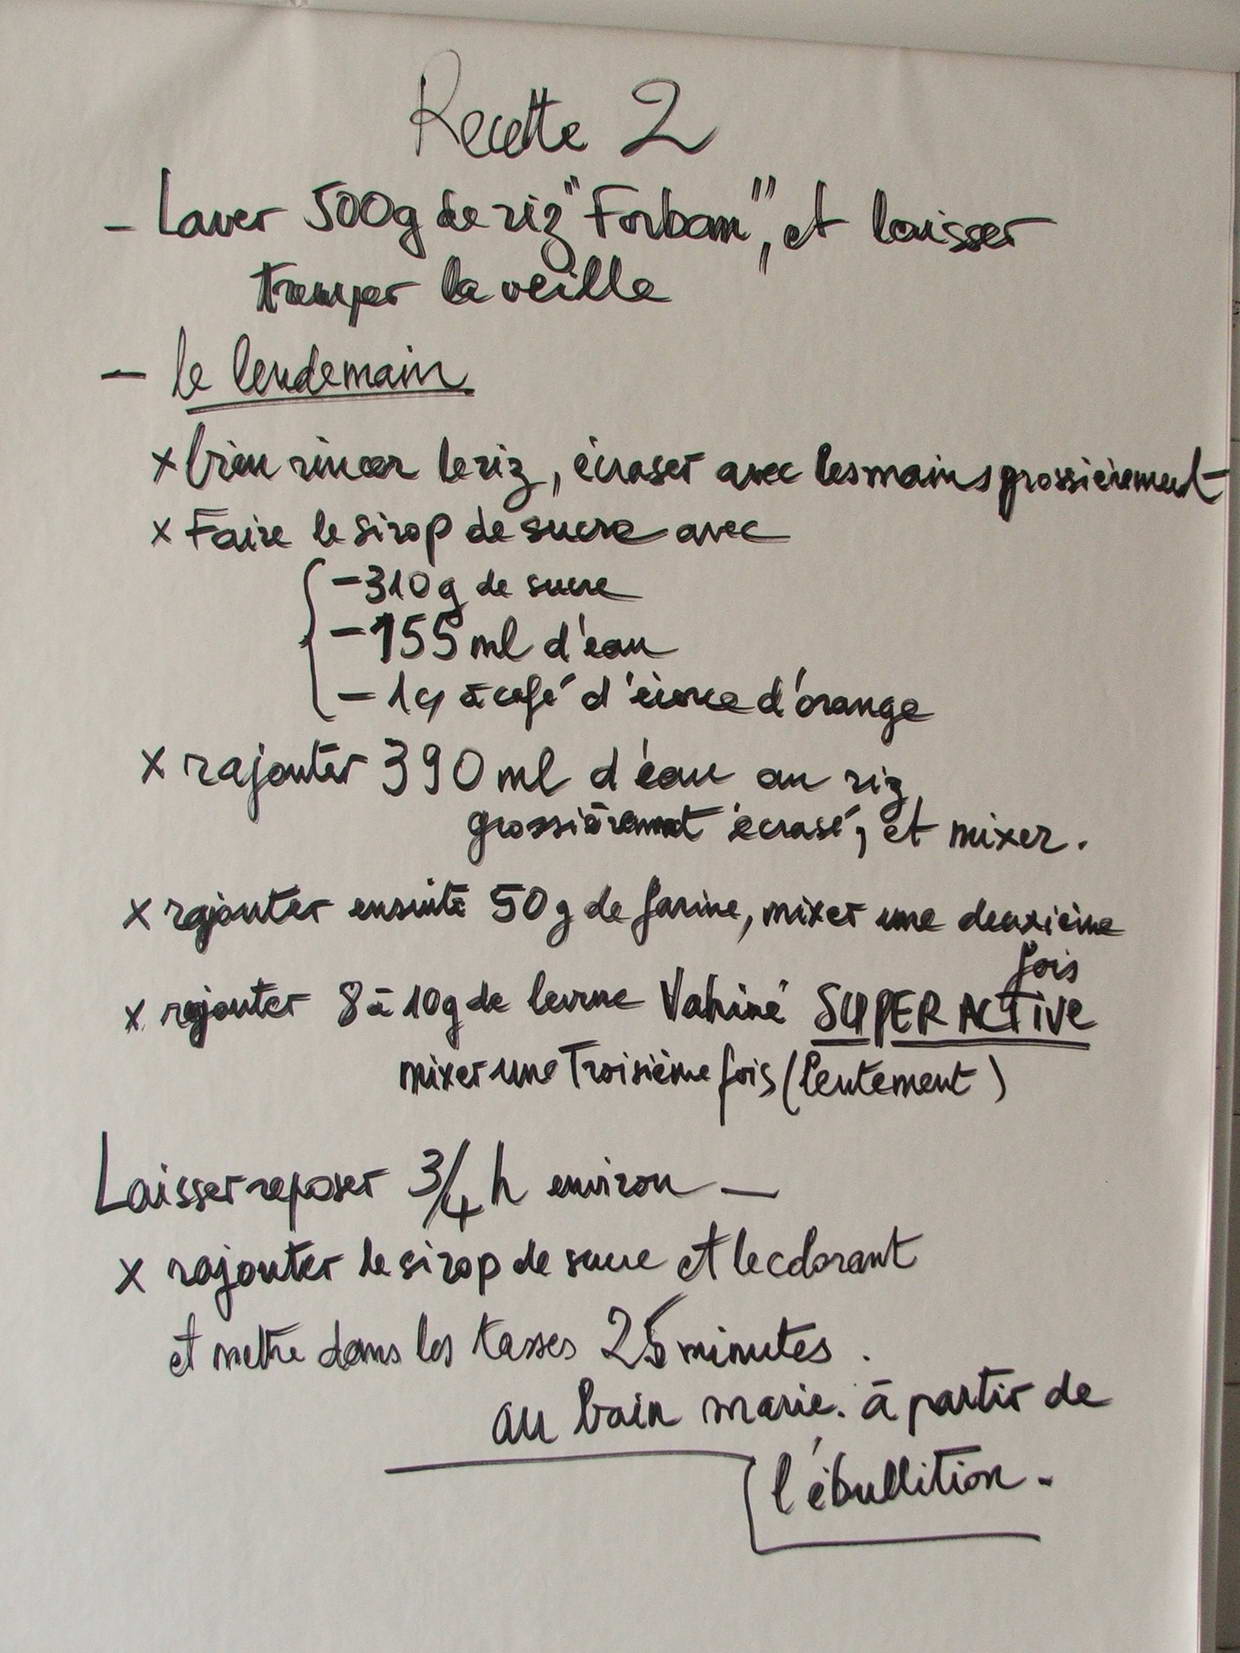 Recette 2
- Laver 500g de riz "Forban", et laisser
tremper la veille
- le lendemain
x bien rincer le riz, écraser avec les mains grossièrement
x Faire le sirop de sucre avec
- 310g de sucre
- 155 ml d'eau
- 1 c, à café d'écorce d'orange
x rajouter 390 ml d'eau au riz
grossièrement écrasé, et mixer.
x rajouter ensuite 50g de farine, mixer une deuxième
fois
x rajouter 8 à 10g de levure Vahiné SUPER ACTIVE
mixer une Troisième fois (lentement)
Laisser reposer 3/4 h environ -
x rajouter le sirop de sucre et le colorant
et mettre dans les tasses 25 minutes.
au bain marie. à partir de
l'ébullition.